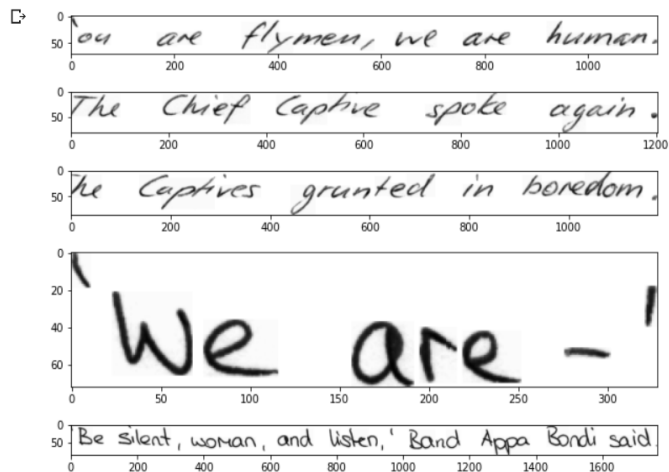 'ou are flymen, we are human.
0 50
0 200 400 600 800 1000
The Chief Captive spoke again.
0 50
0 200 400 600 800 1000 1200
he Captives grunted in boredom.
0 50
0 200 400 600 800 1000
'We are - '
0 20 40 60
0 50 100 150 200 250 300
'Be silent, woman, and listen,' Band Appa Bondi said.
0 50
0 200 400 600 800 1000 1200 1400 1600